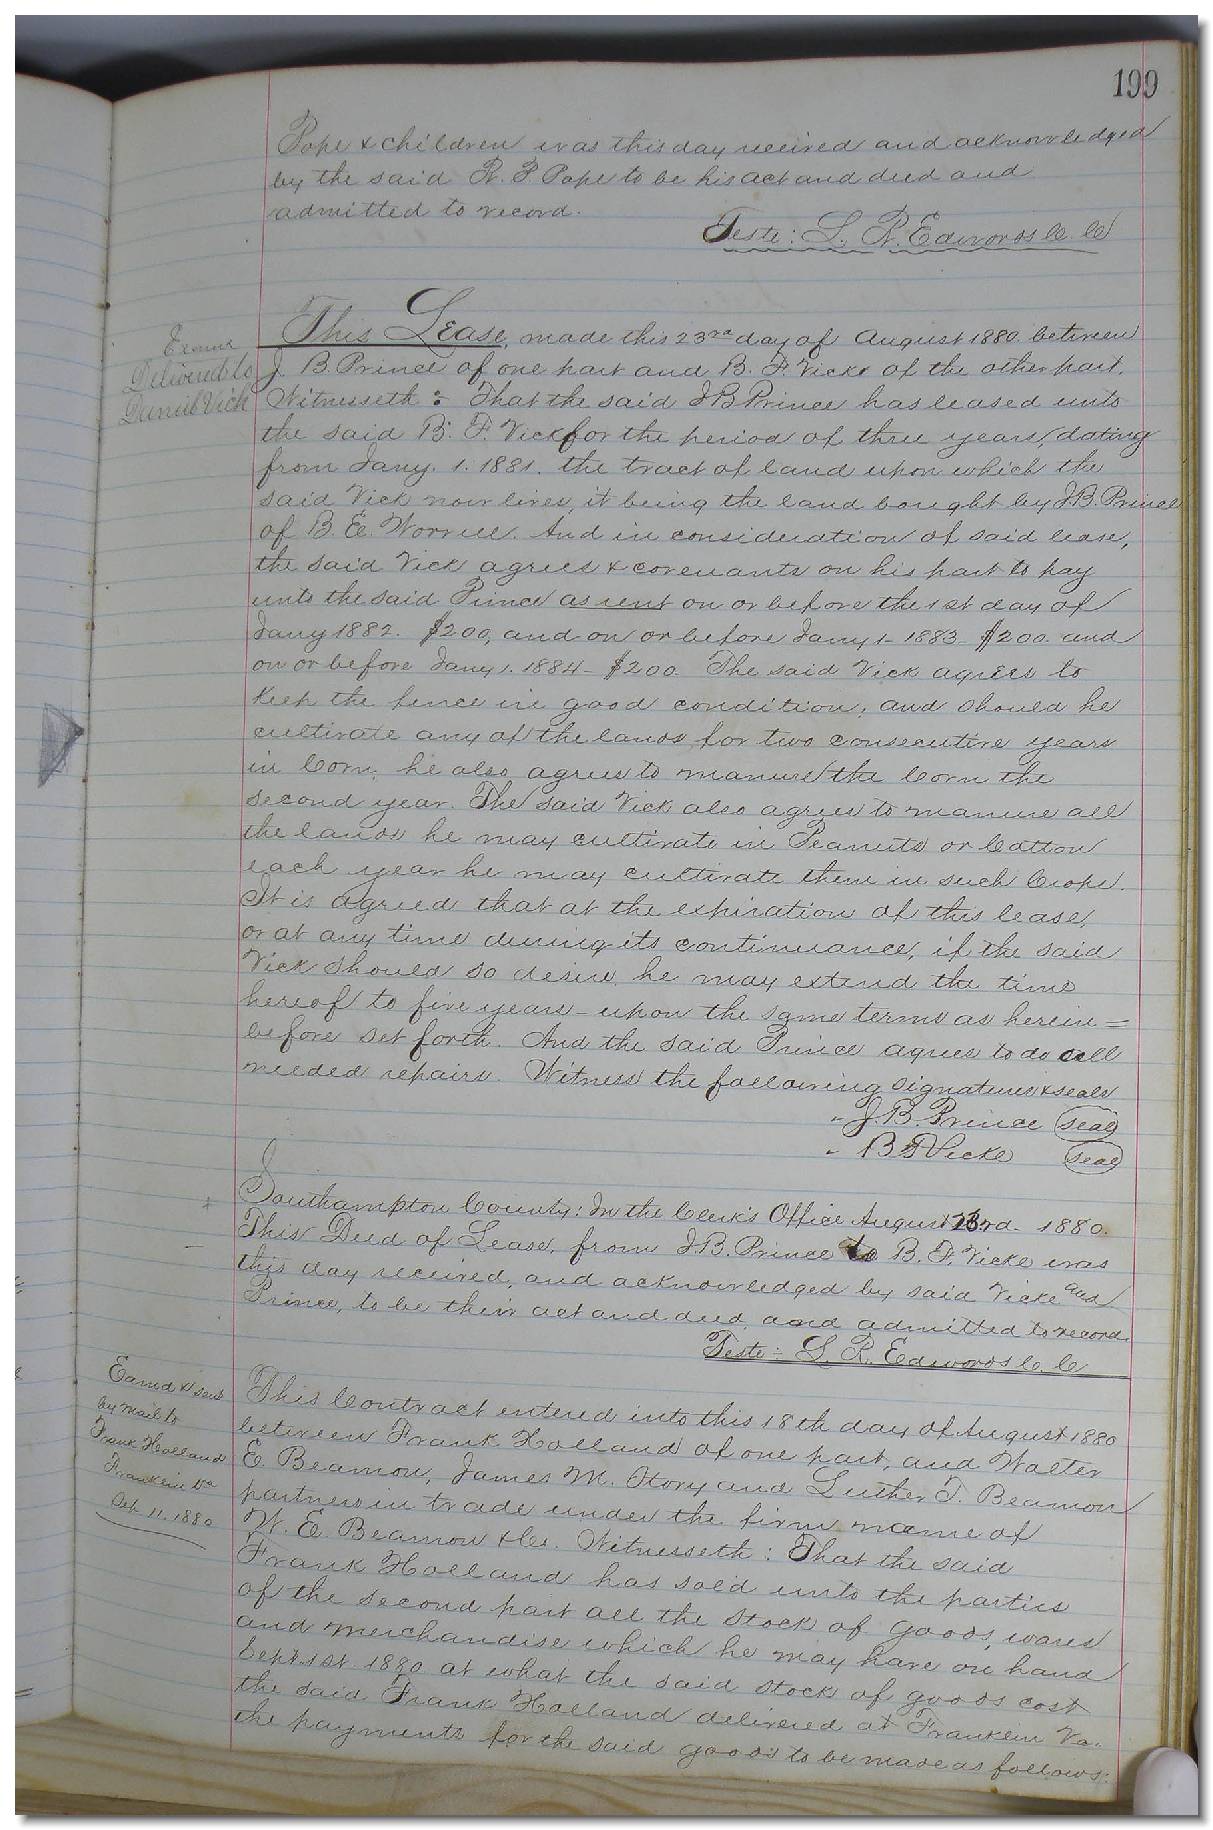 199
Pope & children was this day received and acknowledged
by the said R. P. Pope to be his act and deed and
admitted to record.
Teste: L. R. Edwards C. C
Examd
Delivered to
Vick
This Lease, made this 23rd day of August 1880. between
J. B. Prince of one part and B. F. Vicke of the other part.
Witnesseth: That the said J B Prince has leased unto
the said B. F. Vick for the period of three years, dating
from Jany. 1. 1881. the tract of land upon which the
said Vick now lives, it being the land bought by J. B. Prince
of B. E. Worrell. And in consideration of said lease,
the said Vick agrees & covenants on his part to pay
unto the said Prince as rent on or before the 1st day of
Jany 1882. $200, and on or before Jany 1- 1883 $200. and
on or before Jany 1. 1884- $200. The said Vick agrees to
keep the fence in good condition, and should he
cultivate any of the lands for two consecutive years
in Corn, he also agrees to manure the Corn the
second year. The said Vick also agrees to manure all
the lands he may cultivate in Peanuts or Cotton
each year he may cultivate them in such Crops.
It is agreed that at the expiration of this lease,
or at any time during its continuance, if the said
Vick should so desire, he may extend the time
hereof to five years- upon the same terms as herein=
before set forth. And the said Prince agrees to do all
needed repairs. Witness the following signatures & seals
J. B. Prince seal
B F Vicke seal
Southampton County: In the Clerk's Office August 23rd- 1880.
This Deed of Lease, from J. B. Prince to B. F. Vicke was
this day received, and acknowledged by said Vicke and
Prince, to be their act and deed, and admitted to record.
Teste:- L. R. Edwards C. C
Examd & sent
by mail to
Frank Holland
Franklin Va
11. 1880
This Contract entered into this 18th day of August 1880
between Frank Holland of one part, and Walter
E. Beamon, James M. Story and Luther T. Beamon
partners in trade under the firm name of
W. E. Beamon & Co. Witnesseth: That the said
Frank Holland has sold unto the parties
of the second part all the stock of goods, wares
and merchandise which he may have on hand
Sept 1st 1880 at what the said stock of goods cost
the said Frank Holland delivered at Franklin Va.
the payments for the said goods to be made as follows: